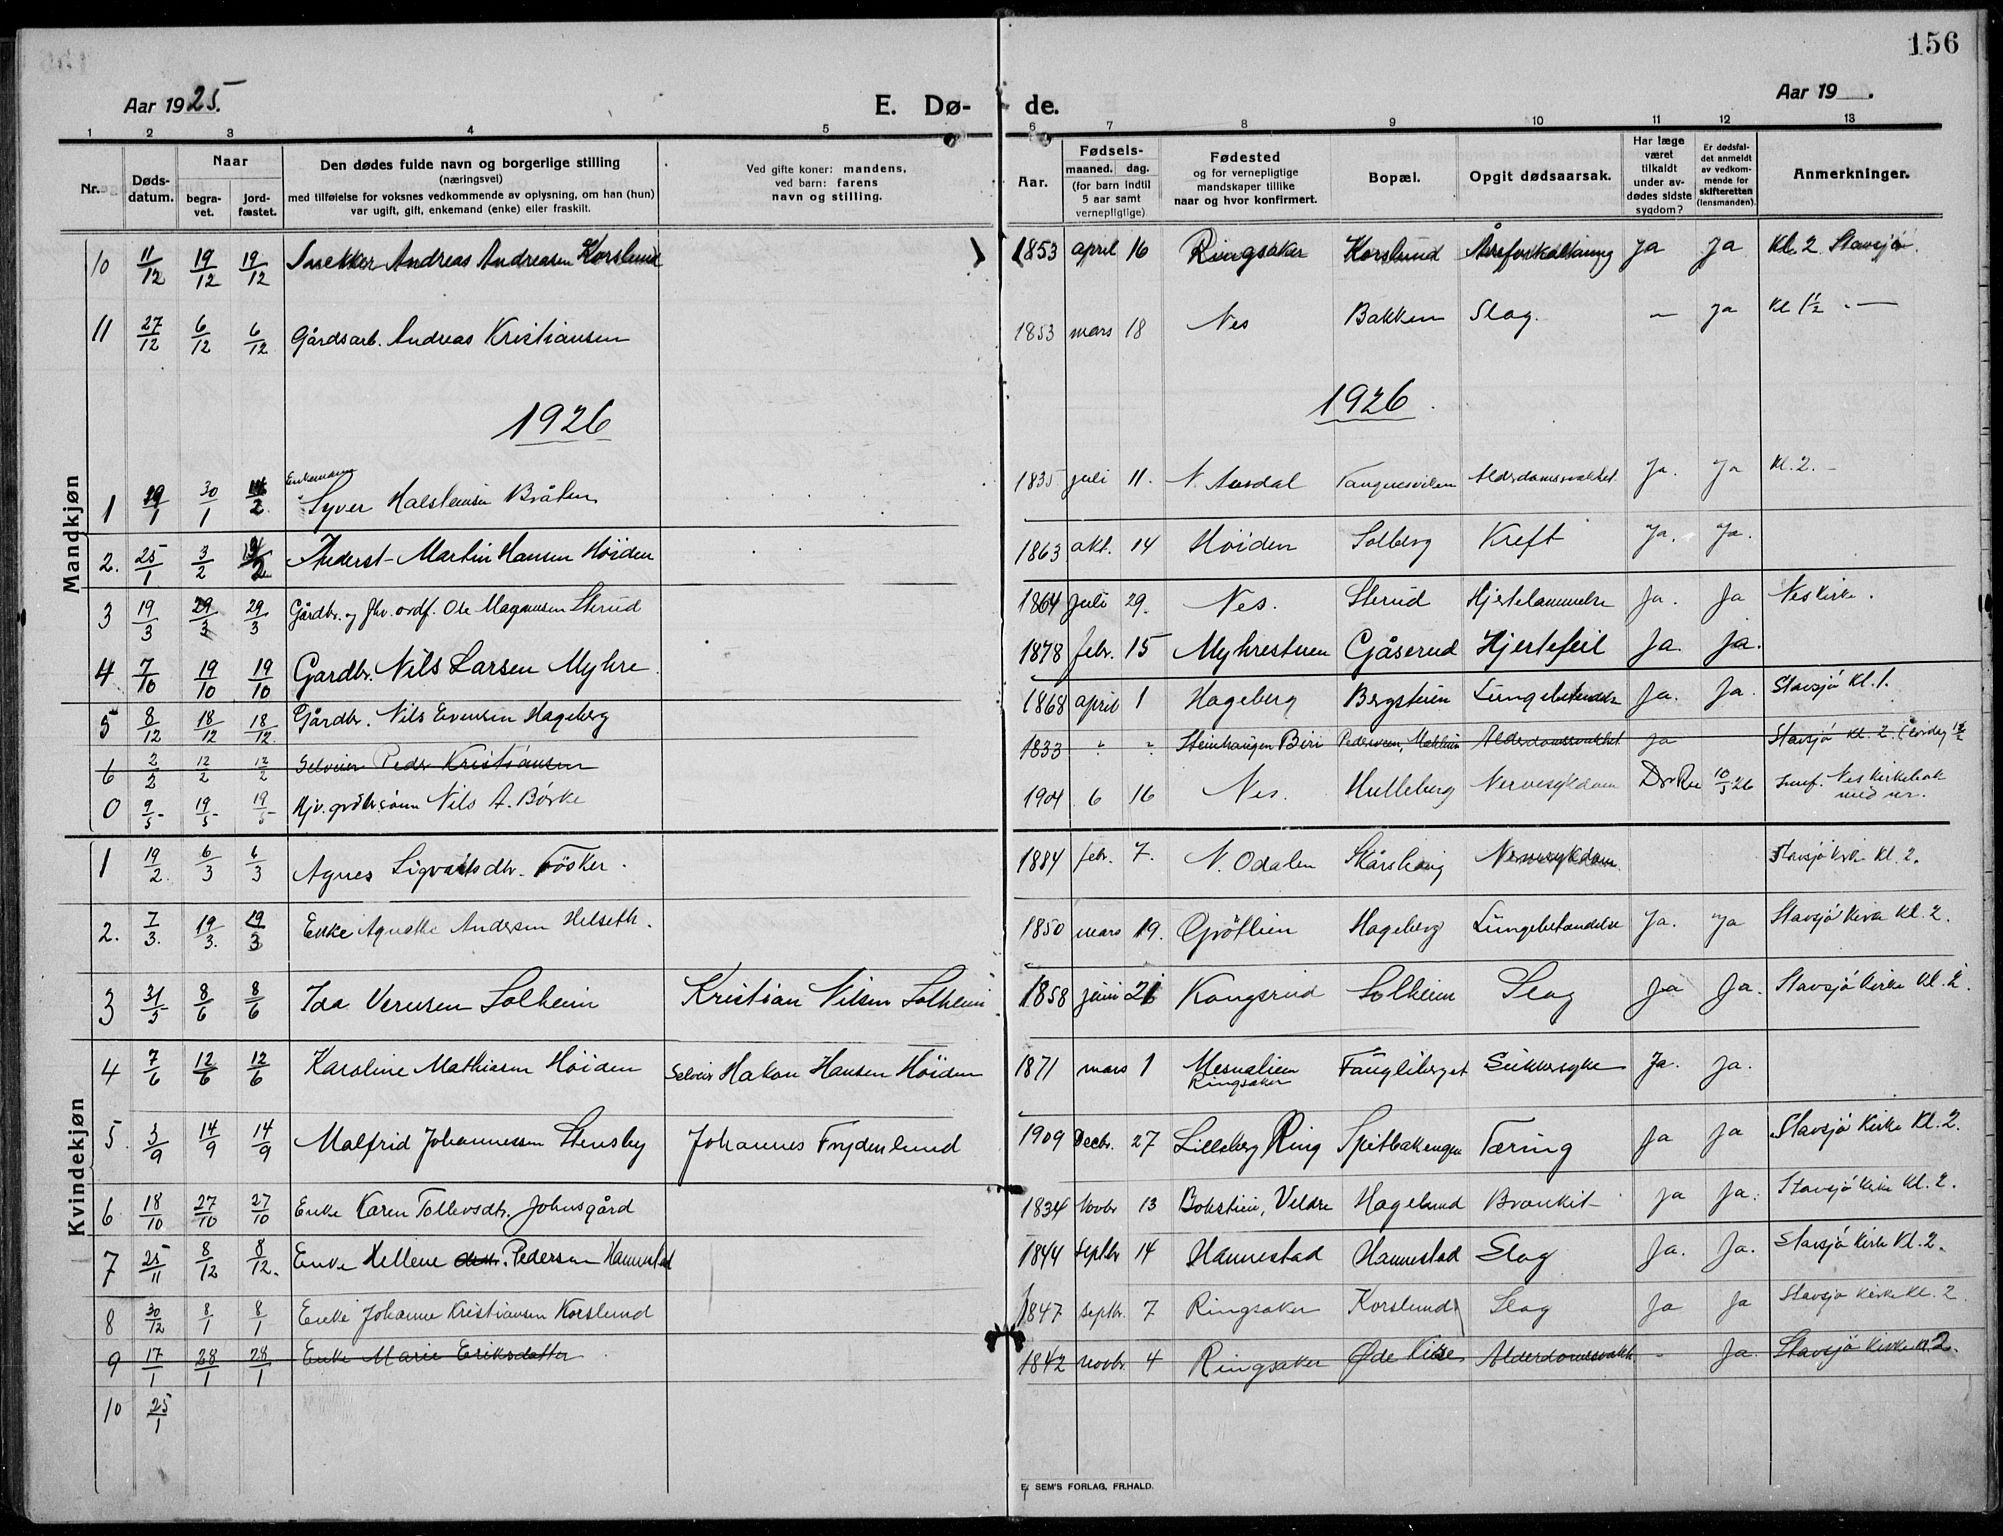 156
Aar 1925.
E. Dø-
de.
Aar 19 .
1 2 3 4 5 6 7 8 9 10 11 12 13
Nr.
Døds-
datum.
Naar
begra-
vet.
jord-
fæstet.
Den dødes fulde navn og borgerlige stilling
(næringsvei)
med tilføielse for voksnes vedkommende av oplysning, om han (hun)
var ugift, gift, enkemand (enke) eller fraskilt.
Ved gifte koner: mandens,
ved barn: farens
navn og stilling.
Aar.
Fødsels-
maaned. dag.
(for barn indtil
5 aar samt
vernepligtige)
Fødested
og for vernepligtige
mandskaper tillike
naar og hvor konfirmert.
Bopæl.
Opgit dødsaarsak.
Har læge
været
tilkaldt
under av-
dødes sidste
sygdom?
Er dødsfal-
det anmeldt
av vedkom-
mende for
skifteretten
(lensmanden).
Anmerkninger.
10 11/12 19/12 19/12 Snekker Andreas Andreasen Korslund 1853 april 16 Ringsaker Korslund Åreforkalkning Ja Ja Kl. 2 Stavsjø.
11 27/12 6/12 6/12 Gårdsarb. Andreas Kristiansen 1853 mars 18 Nes Bakken Slag. — Ja Kl 1½ — —
1926
1926.
Mandkjøn
Enkemann
1 29/1 30/1 /2 Syver Halsteinsen Bråten 1835 juli 11. N. Aurdal Alderdomssvakhet. Ja. Ja Kl. 2. —
2. 25/1 3/2 Anderst Martin Hansen Höiden 1863 okt. 14 Höiden Solberg Kreft Ja. Ja.
3 19/3 29/3 29/3 Gårdbr. og fhv. ordf. Ole Magnusen Sterud 1864 juli 29. Nes. Sterud Hjertelammelse Ja. Ja Nes kirke.
4 7/10 19/10 19/10 Gardbr. Nils Larsen Myhre 1878 febr. 15 Myhrestuen Gåserud Hjertefeil Ja. ja.
5 8/12 18/12 18/12 Gårdbr. Nils Evensen Hageberg 1868 april 1 Hageberg Bergsteien Lungebetendelse Ja. Ja. Stavsjø Kl. 1.
6 2/2 12/2 12/2 Selveier Peder Kristiansen 1833 " " Steinhaugen Biri Alderdomssvakhet Ja Stavsjø Kl. 2.
0 9/5 19/5 19/5 Nils A. Börke 1904 6 16 Nes. Hulleberg Nervesykdom Dr Ree 10/5 26 Nes kirkebok
Kvindekjøn
1 19/2 6/3 6/3 Agnes Sigvartsdtr. Fösker. 1884 febr. 7. N. Odalen Skårshaug Nervesykdom Stavsjø Kirke Kl. 2.
2. 7/3. 19/3. 19/3 Enke Agnethe Andersen Helseth. 1850 mars 19. Gröttlien Hageberg Lungebetændelse Ja. Ja Stavsjø Kirke Kl. 2.
3 31/5 8/6 8/6 Ida Verensen Solheim Kristian Nilsen Solheim 1858 juni 21 Kongsrud Solheim Slag Ja Ja. Stavsjø Kirke Kl. 2.
4 7/6 12/6 12/6 Karoline Mathiasen Höiden Selveier Hakon Hansen Höiden 1871 mars 1 Mesnalien Ringsaker Fangliberget Sukkersyke Ja. Ja.
5. 3/9 14/9 14/9 Malfrid Johannessen Stensby Johannes Frydenlund 1909 Decbr. 27 Lilleberg Ring Spitbakengen Tæring Ja Ja Stavsjø Kirke Kl. 2.
6 18/10 27/10 27/10 Enke Karen Tollevsdtr. Johnsgård 1834 Novbr 13 Bokstien, Veldre Hagelund Bronkit Ja Ja. Stavsjø Kirke Kl. 2.
7 25/11 8/12 8/12. Enke Hellene Pedersen Hannestad 1844 Septbr 14 Hannestad Hannestad Slag Ja. Ja. Stavsjø Kirke Kl. 2.
8 30/12 8/1 8/1 Enke Johanne Kristiansen Korslund 1847 septbr. 7 Ringsaker Korslund Slag Ja Ja Stavsjø Kirke Kl. 2
9 17/1 28/1 28/1 Enke Marie Eriksdatter 1842 novbr. 4 Ringsaker Øde Kise Alderdomssvakh. - Ja. Stavsjø Kirke Kl 2.
10 25/1
E. SEM'S FORLAG, FR.HALD.